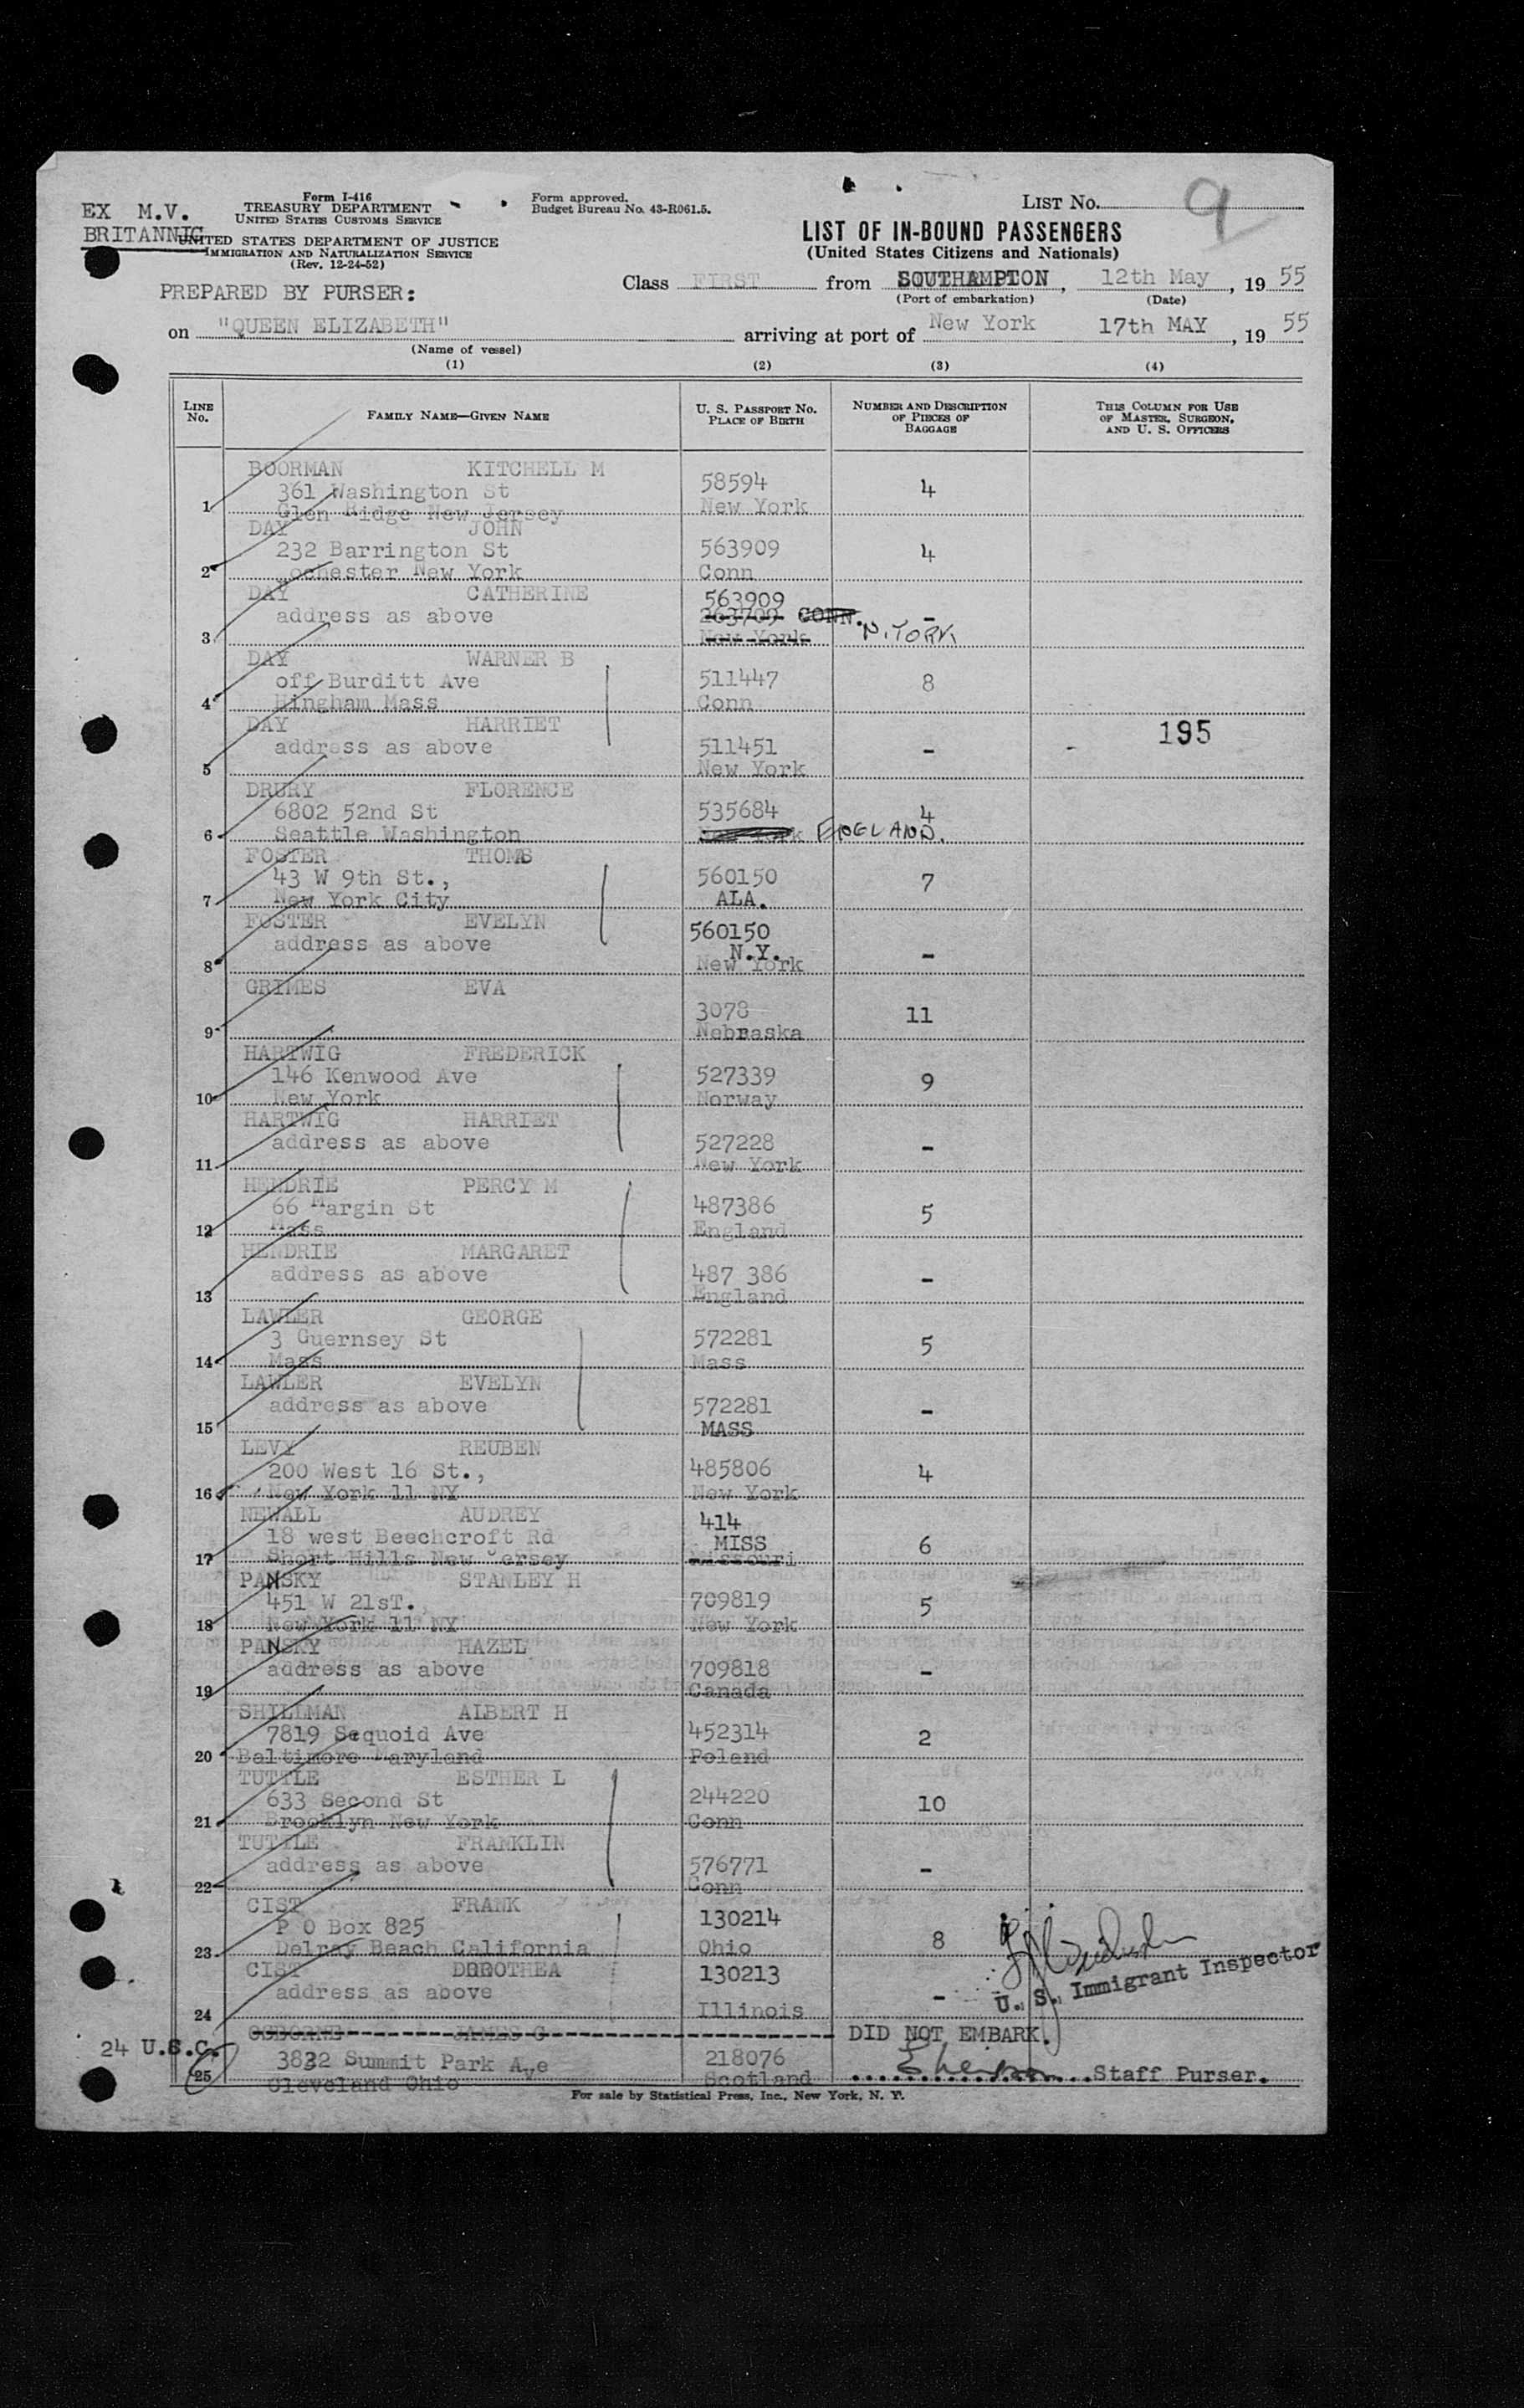 EX M.V.
BRITANNIC
Form I-416
TREASURY DEPARTMENT
UNITED STATES CUSTOMS SERVICE
UNITED STATES DEPARTMENT OF JUSTICE
IMMIGRATION AND NATURALIZATION SERVICE
(Rev. 12-24-52)
Form approved.
Budget Bureau No. 43-R061.5.
LIST NO. 9
LIST OF IN-BOUND PASSENGERS
(United States Citizens and Nationals)
PREPARED BY PURSER:
Class FIRST from SOUTHAMPTON, 12th May, 19 55
(Port of embarkation) (Date)
on "QUEEN ELIZABETH" arriving at port of New York 17th MAY, 19 55
(Name of vessel)
(1) (2) (3) (4)
LINE NO. FAMILY NAME—GIVEN NAME U. S. PASSPORT NO. PLACE OF BIRTH NUMBER AND DESCRIPTION OF PIECES OF BAGGAGE THIS COLUMN FOR USE OF MASTER, SURGEON, AND U. S. OFFICERS
BOORMAN KITCHELL M
361 Washington St 58594 4
1 Glen Ridge New Jersey New York
DAY JOHN
232 Barrington St 563909 4
2 ochester New York Conn
DAY CATHERINE 563909
address as above 263709 CONN. -
3 New York N.YORK
DAY WARNER B
off Burditt Ave 511447 8
4 Hingham Mass Conn
DAY HARRIET 195
address as above 511451 -
5 New York
DRURY FLORENCE
6802 52nd St 535684 4
6 Seattle Washington ENGLAND.
FOSTER THOMAS
43 W 9th St., 560150 7
7 New York City ALA.
FOSTER EVELYN 560150
address as above N.Y. -
8 New York
GRIMES EVA
3078 11
9 Nebraska
HARTWIG FREDERICK
146 Kenwood Ave 527339 9
10 New York Norway
HARTWIG HARRIET
address as above 527228 -
11 New York
HENDRIE PERCY M
66 Margin St 487386 5
12 Mass England
HENDRIE MARGARET
address as above 487 386 -
13 England
LAWLER GEORGE
3 Guernsey St 572281 5
14 Mass Mass
LAWLER EVELYN
address as above 572281 -
15 MASS
LEVY REUBEN
200 West 16 St., 485806 4
16 New York 11 NY New York
NEWALL AUDREY 414
18 west Beechcroft Rd MISS 6
17 Short Hills New Jersey Missouri
PANSKY STANLEY H
451 W 21sT. 709819 5
18 New York 11 NY New York
PANSKY HAZEL
address as above 709818 -
19 Canada
SHILLMAN ALBERT H
7819 Sequoid Ave 452314 2
20 Baltimore Maryland Poland
TUTTLE ESTHER L
633 Second St 244220 10
21 Brooklyn New York Conn
TUTTLE FRANKLIN
address as above 576771 -
22 Conn
CIST FRANK 130214
P O Box 825 8
23 Delray Beach California Ohio
CIST DOROTHEA 130213
address as above -
24 Illinois
U. S. Immigrant Inspector
OSBORNE JAMES G DID NOT EMBARK.
24 U.S.C.
3832 Summit Park Ave 218076
25 Cleveland Ohio Scotland Staff Purser.
For sale by Statistical Press, Inc., New York, N. Y.